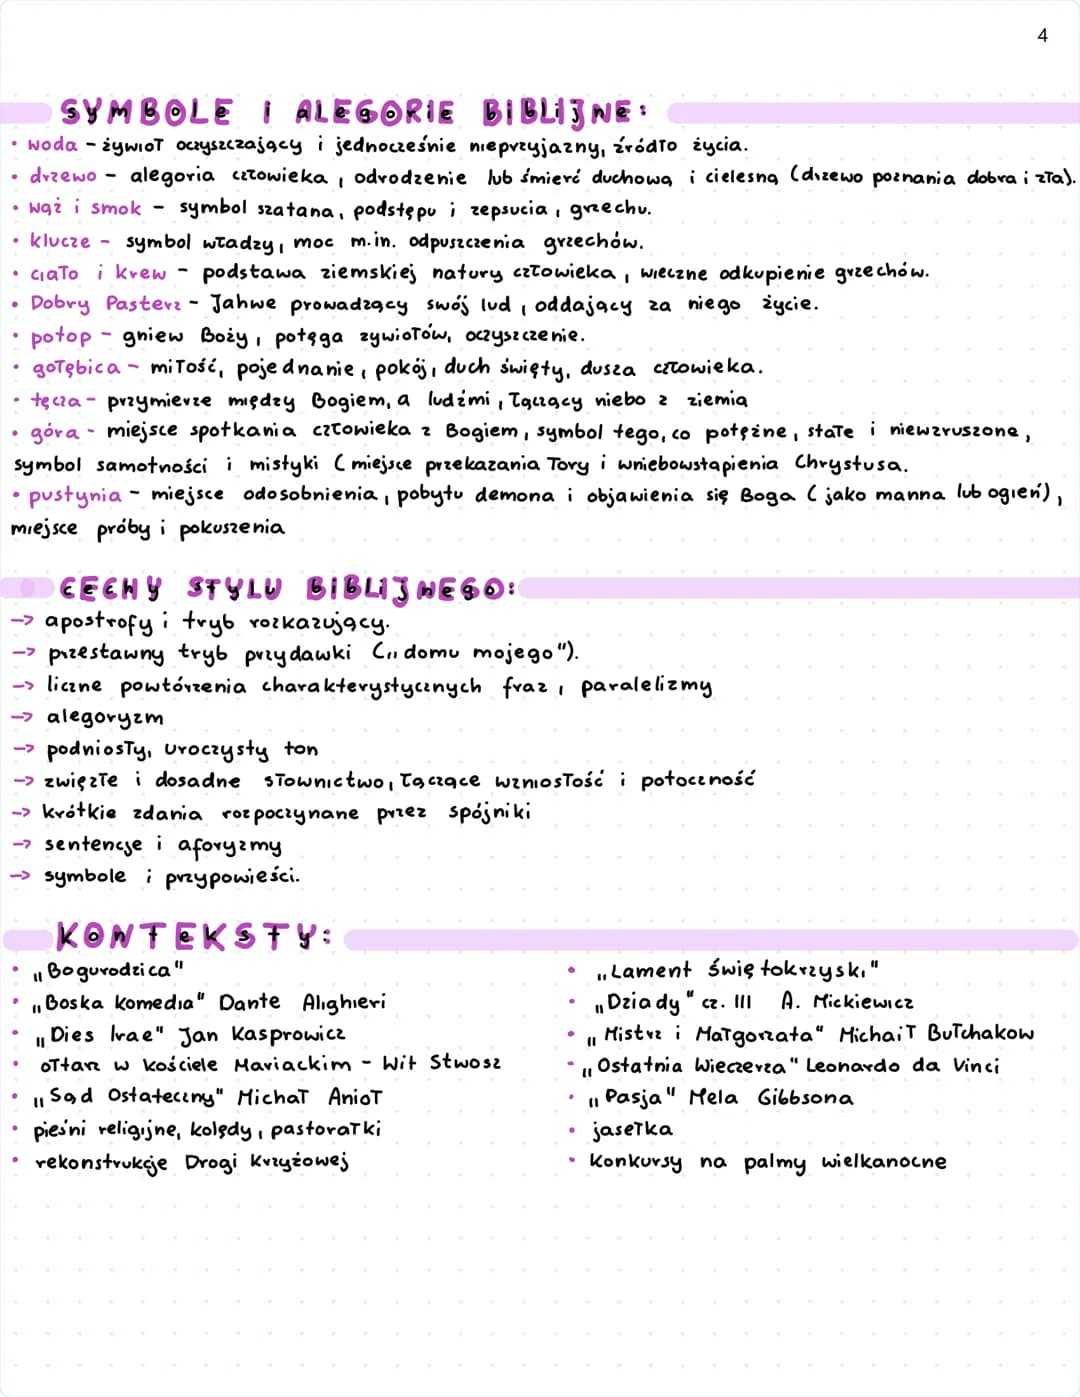 4
SYMBOLE I ALEGORIE BIBLIJNE:
• woda - żywioł oczyszczający i jednocześnie nieprzyjazny, źródło życia.
• drzewo - alegoria człowieka, odrodzenie lub śmierć duchową i cielesną (drzewo poznania dobra i zła).
• wąż i smok - symbol szatana, podstępu i zepsucia, grzechu.
• klucze - symbol władzy, moc m.in. odpuszczenia grzechów.
• ciało i krew - podstawa ziemskiej natury człowieka, wieczne odkupienie grzechów.
• Dobry Pasterz - Jahwe prowadzący swój lud, oddający za niego życie.
• potop - gniew Boży, potęga zywiołów, oczyszczenie.
• gołębica - miłość, pojednanie, pokój, duch święty, dusza człowieka.
• tęcza - przymierze między Bogiem, a ludźmi, łączący niebo z ziemią
• góra - miejsce spotkania człowieka z Bogiem, symbol tego, co potężne, stałe i niewzruszone,
symbol samotności i mistyki (miejsce przekazania Tory i wniebowstąpienia Chrystusa.
• pustynia - miejsce odosobnienia, pobytu demona i objawienia się Boga (jako manna lub ogień),
miejsce próby i pokuszenia
CECHY STYLU BIBLIJNEGO:
-> apostrofy i tryb rozkazujący.
-> przestawny tryb przydawki („domu mojego").
-> liczne powtórzenia charakterystycznych fraz, paralelizmy
-> alegoryzm
-> podniosły, uroczysty ton
-> zwięzłe i dosadne słownictwo, łączące wzniosłość i potoczność
-> krótkie zdania rozpoczynane przez spójniki
-> sentencje i aforyzmy
-> symbole i przypowieści.
KONTEKSTY:
• „Bogurodzica"
• „Boska Komedia" Dante Alighieri
• „Dies Irae" Jan Kasprowicz
• ołtarz w Kościele Mariackim - Wit Stwosz
• „Sąd Ostateczny" Michał Anioł
• pieśni religijne, kolędy, pastorałki
• rekonstrukcje Drogi Krzyżowej
• „Lament świętokrzyski"
• „Dziady" cz. III A. Mickiewicz
• „Mistrz i Małgorzata" Michaił Bułhakow
• „Ostatnia Wieczerza" Leonardo da Vinci
• „Pasja" Mela Gibbsona
• jasełka
• Konkursy na palmy wielkanocne